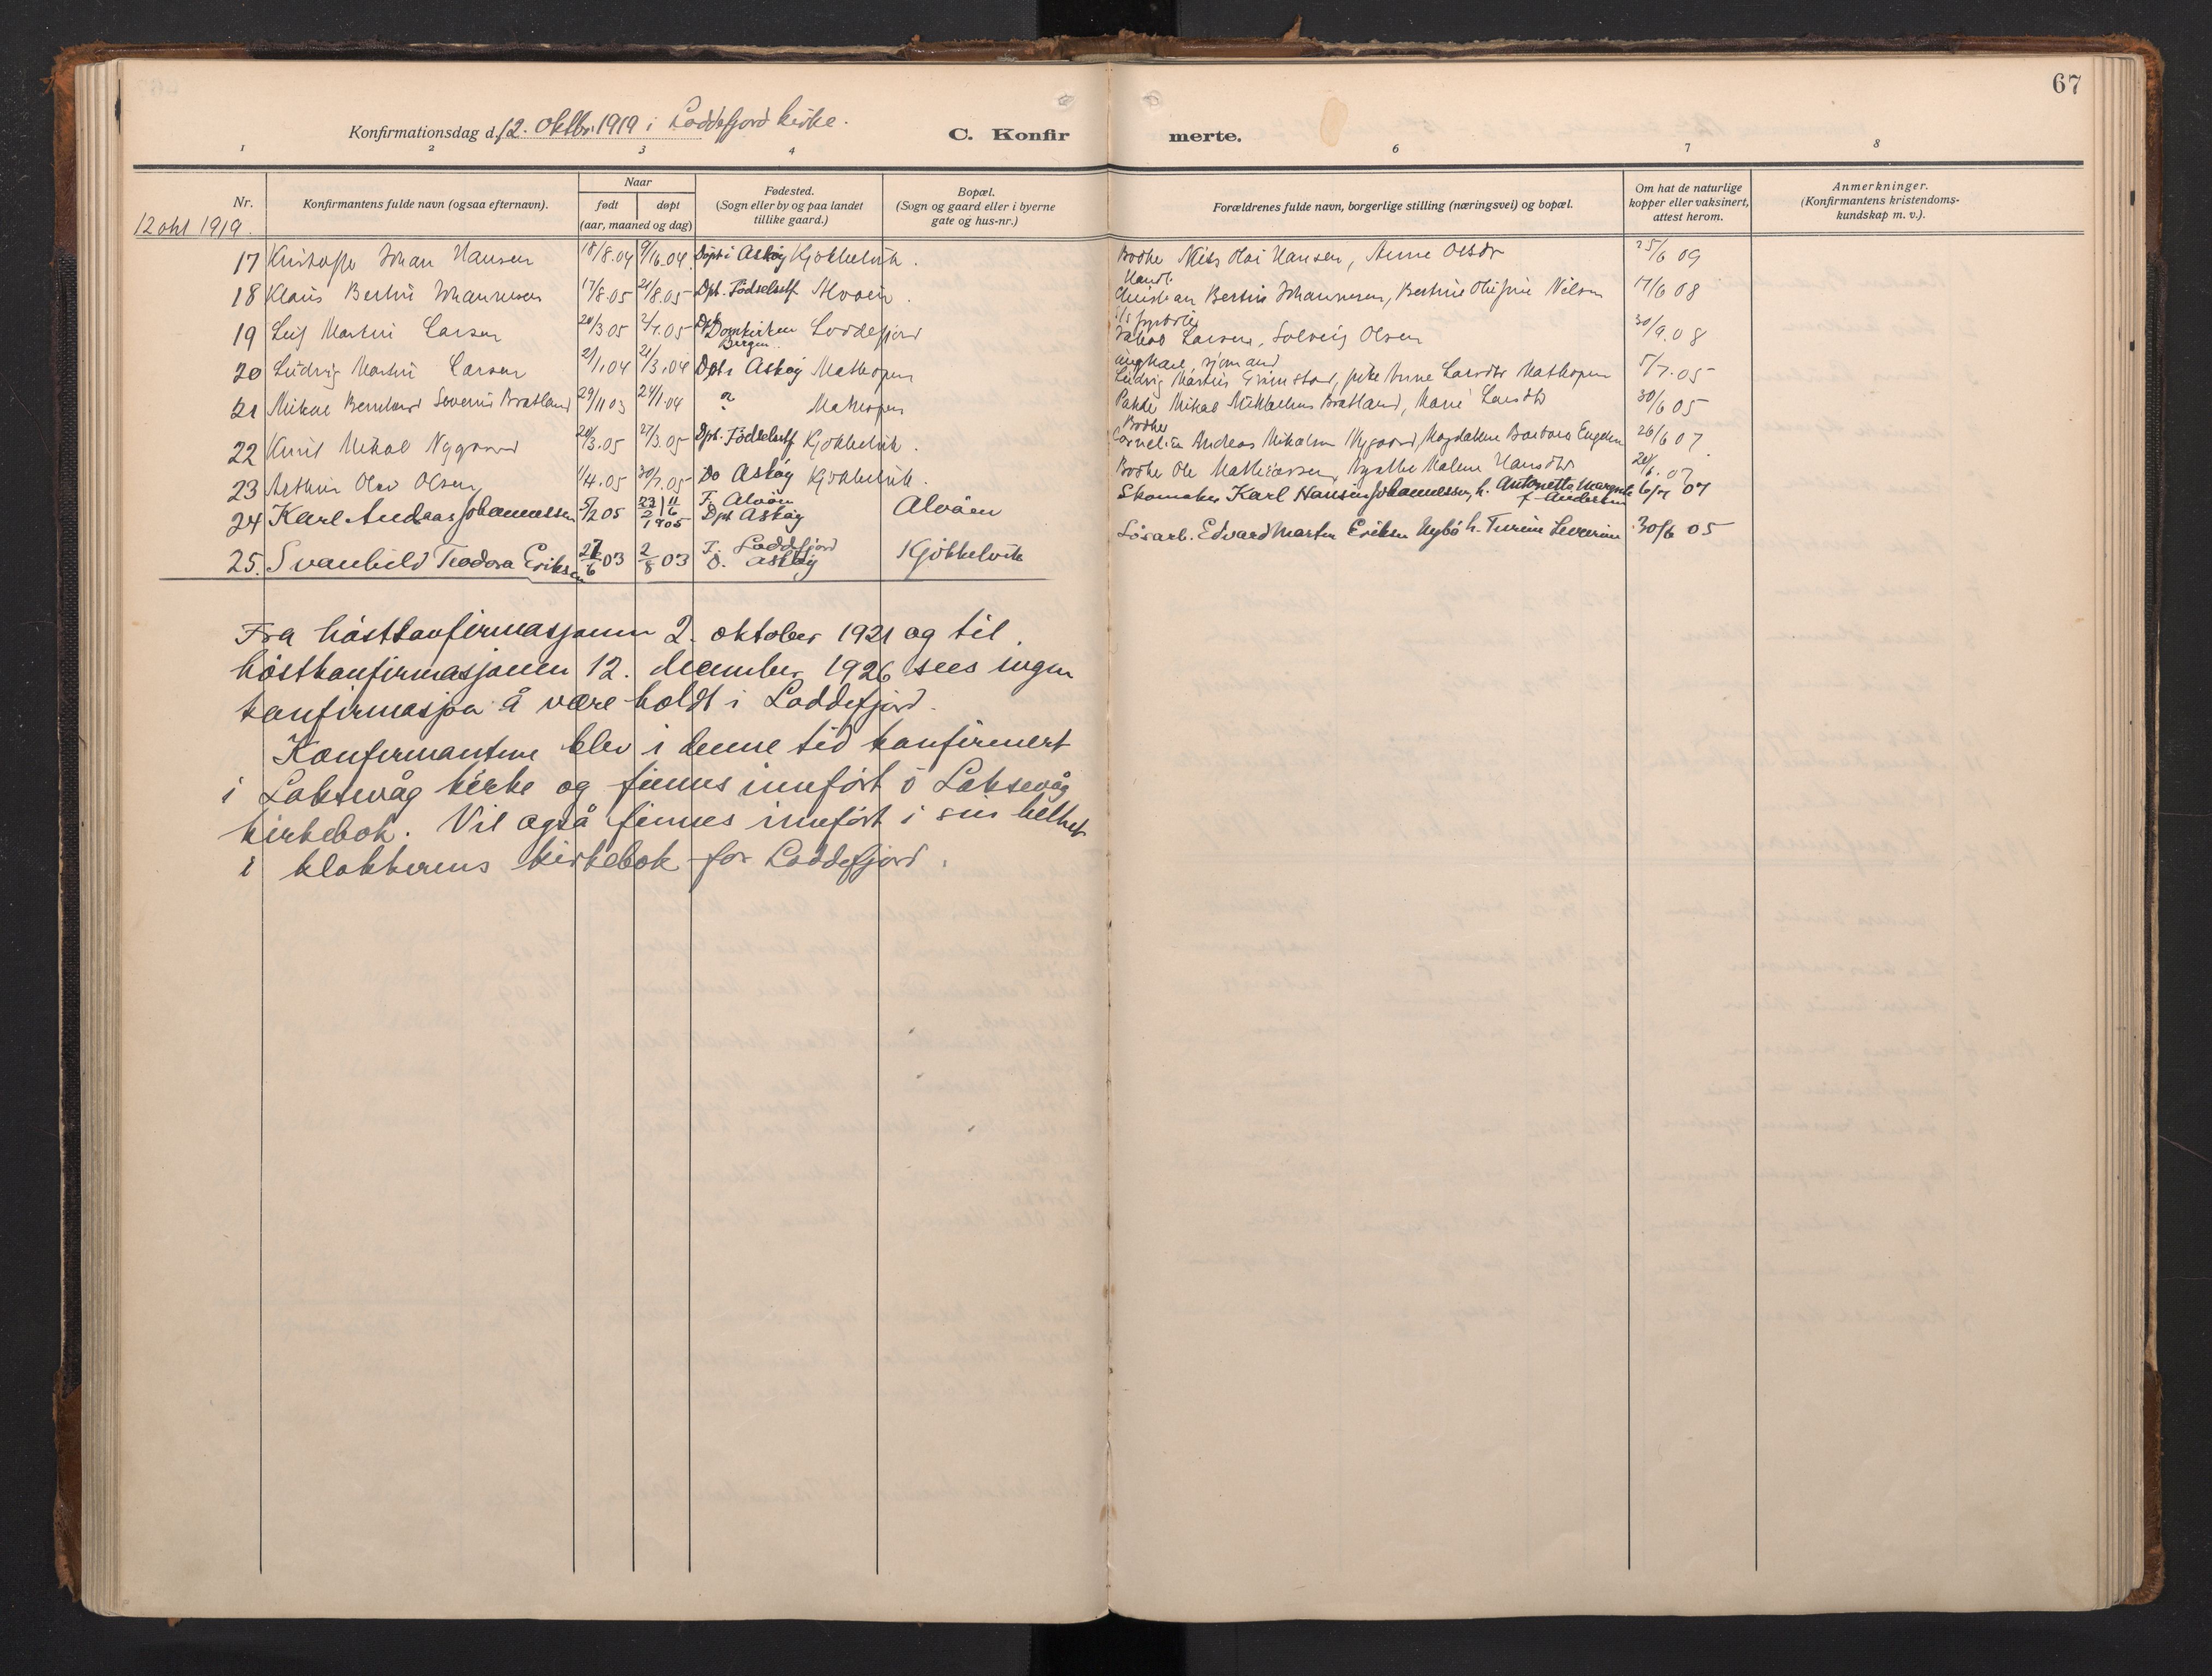 67
Konfirmationsdag d. 12. oktbr. 1919 i Loddefjord kirke.
C. Konfirmerte.
1 2 3 4 6 7 8
Nr.
Konfirmantens fulde navn (ogsaa efternavn).
Naar
født døpt
(aar, maaned og dag)
Fødested.
(Sogn eller by og paa landet
tillike gaard.)
Bopæl.
(Sogn og gaard eller i byerne
gate og hus-nr.)
Forældrenes fulde navn, borgerlige stilling (næringsvei) og bopæl.
Om hat de naturlige
kopper eller vaksinert,
attest herom.
Anmerkninger.
(Konfirmantens kristendoms-
kundskap m. v.).
12 okt 1919.
17 Johan Hansen 18/8.04 9/10.04 Døpt i Askøy Kjøkkelvik. Niels Olai Hansen, Anne Olsdr 25/6 09
18 Klaus Bertin Johannesen 17/8.05 21/8.05 Dpt. Fødselsstf Alvøen. Bertin Johannesen, Bertine Nilsen 17/6 08
19 Leif Martin Larsen 20/3 05 2/7.05 Domkirken Bergen Loddefjord Larsen, Solveig Olsen 30/9.08
20 Ludvig Martin Larsen 2/1.04 21/3.04 Dpt i Askøy Mathopen ungkarl, sjømand Ludvig Martin Grimstad, pike Anne Larsdtr Mathopen 5/7.05
21 Mikal Bernhard Severin Bratland 29/11 03 24/1.04 Mathopen Mikal Bratland, Marie Larsdtr 30/6 05
22 Knut Mikal Nygaard 20/3.05 27/3.05 Dpt. Fødselsstf Kjøkkelvik. Andreas Mikalsen Nygaard, Magdalene Barbara Engelsen 26/6 07
23 Arthur Olav Olsen 1/4.05 30/7.05 Do Askøy Kjøkkelvik. Ole Mathiassen, Malene Hansdtr 07
24 Karl Andreas Johannessen 5/2 05 1905 F. Alvøen Dpt Askøy Alvøen Skomaker Karl Hansin Johannessen, h. Antonette Margrete f. Andersen 6/7 07
25. Svanhild Teodora Eriksen 27/6 03 2/8 03 F. Loddefjord D. Askøy Kjøkkelvik Løsarb. Edvard Martin Eriksen Nybø h. Turine Severine 30/6 05
Fra høstkonfirmasjonen 2. oktober 1921 og til
høstkonfirmasjonen 12. december 1926 sees ingen
konfirmasjon å være holdt i Loddefjord.
Konfirmantene blev i denne tid konfirmert
i Laksevåg kirke og finnes innført i Laksevåg
kirkebok. Vil også finnes innført i sin helhet
i klokkerens kirkebok for Loddefjord.